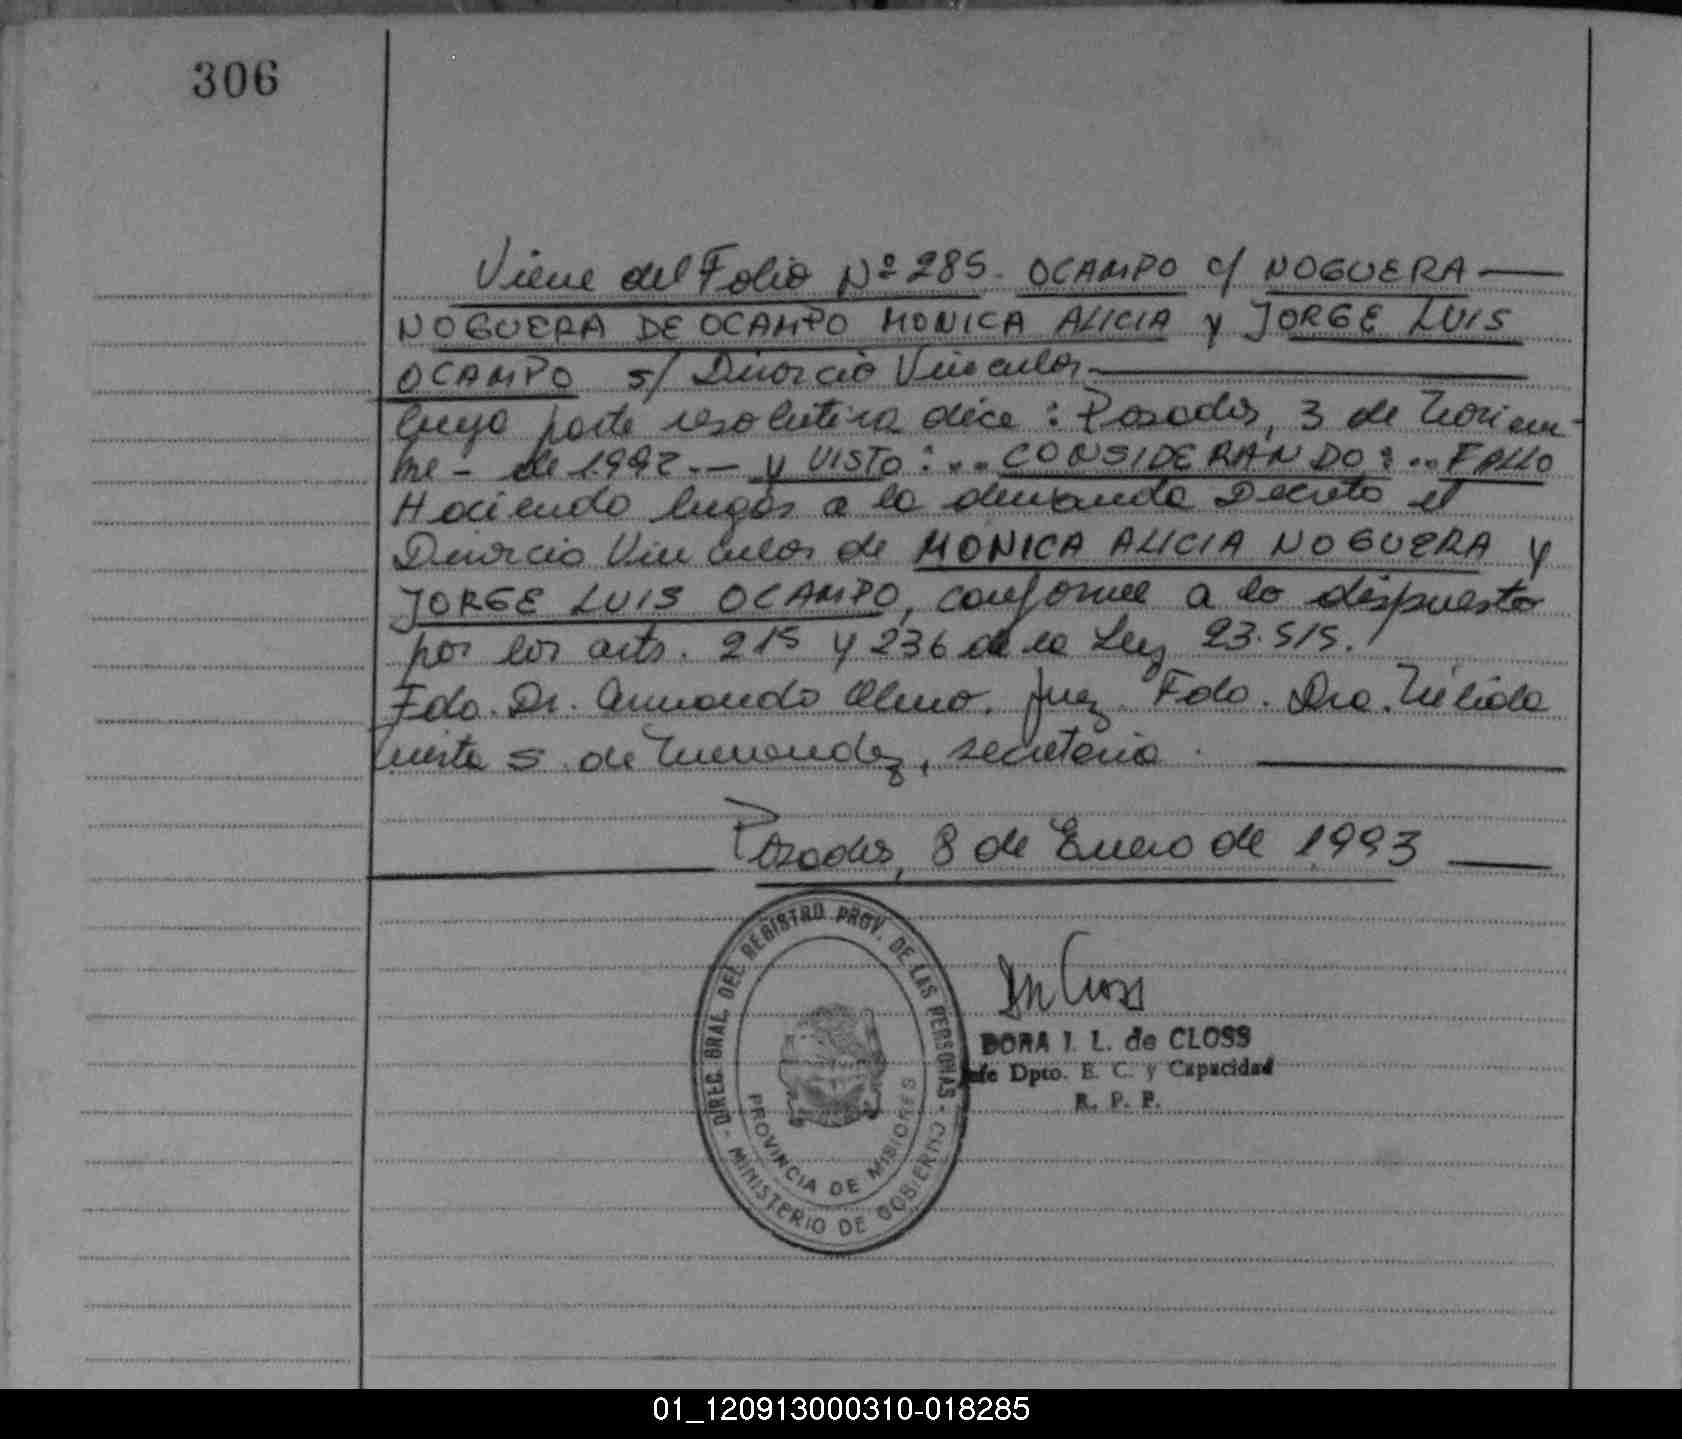 306
Viene del Folio Nº 285. OCAMPO c/ NOGUERA
NOGUERA DE OCAMPO MONICA ALICIA y JORGE LUIS
OCAMPO s/ Divorcio Vincular
Cuya parte resolutiva dice: Posadas, 3 de Noviem-
bre - de 1992.- y VISTO:... CONSIDERANDO:... FALLO
Haciendo lugar a la demanda Decreto el
Divorcio Vincular de MONICA ALICIA NOGUERA y
JORGE LUIS OCAMPO, conforme a lo dispuesto
por los arts. 215 y 236 de la Ley 23.515.
Fdo. Dr. Armando Olmo. Juez. Fdo. Dra. Nélida
S. de secretaria.
Posadas, 8 de Enero de 1993
DIREC. GRAL. DEL REGISTRO PROV. DE LAS PERSONAS - MINISTERIO DE GOBIERNO
PROVINCIA DE MISIONES
DORA I. L. de CLOSS
Jefe Dpto. E. C. y Capacidad
R. P. P.
01_120913000310-018285